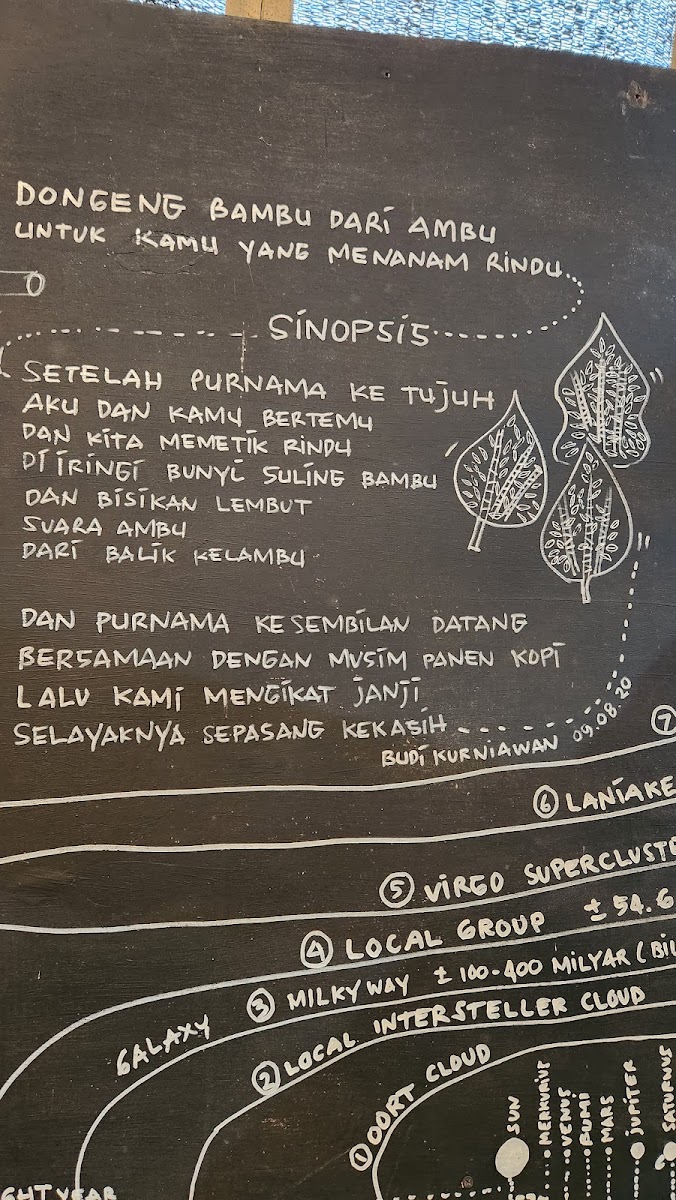 DONGENG BAMBU DARI AMBU
UNTUK KAMU YANG MENANAM RINDU
SINOPSIS
SETELAH PURNAMA KE TUJUH
AKU DAN KAMU BERTEMU
DAN KITA MEMETIK RINDU
DI IRINGI BUNYI SULING BAMBU
DAN BISIKAN LEMBUT
SUARA AMBU
DARI BALIK KELAMBU
DAN PURNAMA KESEMBILAN DATANG
BERSAMAAN DENGAN MUSIM PANEN KOPI
LALU KAMI MENGIKAT JANJI
SELAYAKNYA SEPASANG KEKASIH
BUDI KURNIAWAN 09.08.20
7
6 LANIAKE
5 VIRGO SUPERCLUSTE
4 LOCAL GROUP ± 54.6
GALAXY 3 MILKY WAY ± 100-400 MILYAR (BIL
2 LOCAL INTERSTELLER CLOUD
1 OORT CLOUD
SUN
MERKURIUS
VENUS
BUMI
MARS
JUPITER
SATURNUS
GHT YEAR